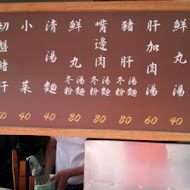 鮮丸湯 40
肝加肉湯 60
豬肝冬粉湯麵 80
嘴邊肉冬粉湯麵 80
鮮丸冬粉湯麵 80
清湯麵 40
小菜 40
切盤豬肝 50